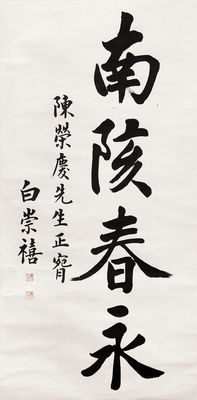 南陔春永
陳榮慶先生正脔
白崇禧